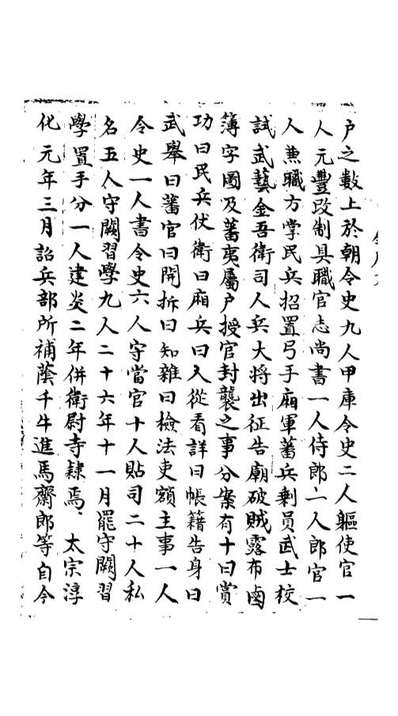 户之數上於朝令史九人甲庫令史二人驅使官一
人元豐改制具職官志尚書一人侍郎一人郎官一
人兼職方掌民兵招置弓手廂軍蕃兵剰員武士校
試武藝金吾衛司人兵大將出征告廟破賊露布鹵
簿字圖及蕃夷屬户授官封襲之事分案有十曰賞
功曰民兵伏衛曰廂兵曰入從看詳曰帳籍告身曰
武舉曰蕃官曰開拆曰知雜曰檢法吏額主事一人
令史一人書令史六人守當官十人貼司二十人私
名五人守闕習學九人二十六年十一月罷守闕習
學置手分一人建炎二年併衛尉寺隷焉 太宗淳
化元年三月詔兵部所補蔭千牛進馬齋郎等自今